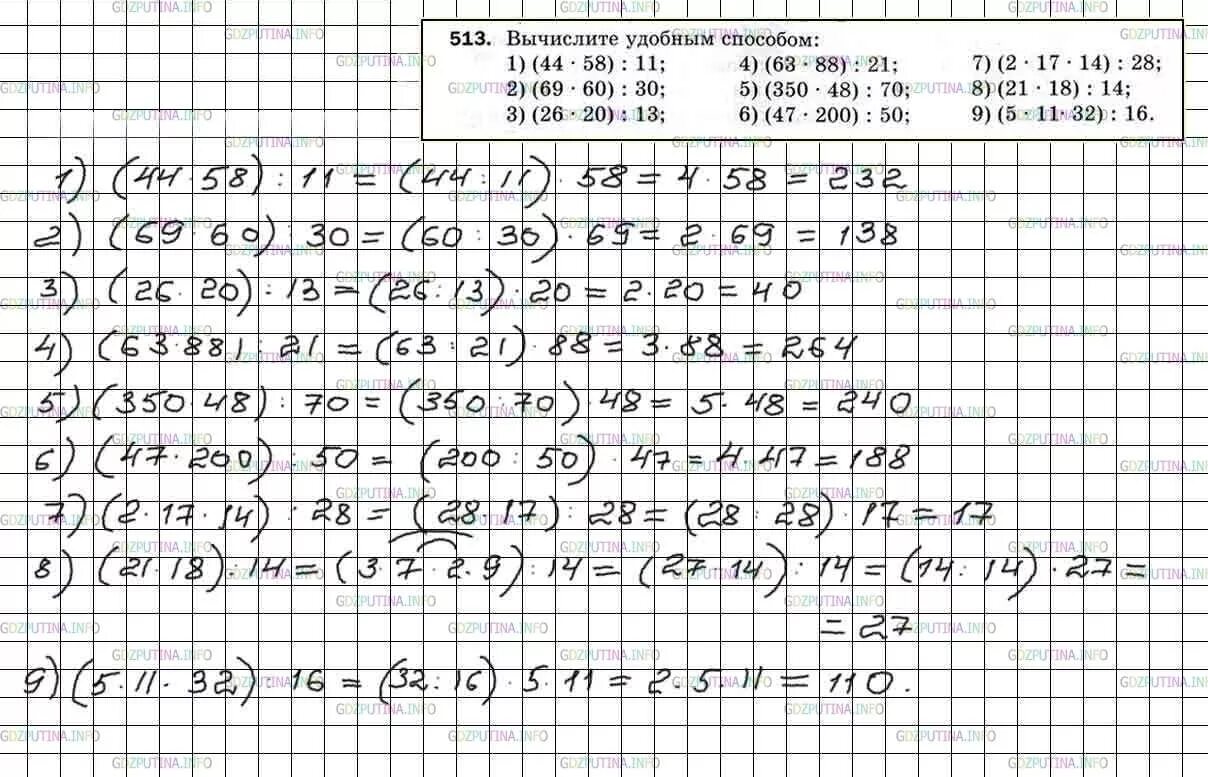 513. Вычислите удобным способом:
1) (44 · 58) : 11; 4) (63 · 88) : 21; 7) (2 · 17 · 14) : 28;
2) (69 · 60) : 30; 5) (350 · 48) : 70; 8) (21 · 18) : 14;
3) (26 · 20) : 13; 6) (47 · 200) : 50; 9) (5 · 11 · 32) : 16.
1) (44·58) : 11 = (44 : 11) · 58 = 4·58 = 232
2) (69·60) : 30 = (60 : 30) · 69 = 2·69 = 138
3) (26·20) : 13 = (26:13)·20 = 2·20 = 40
4) (63·88) : 21 = (63 : 21) · 88 = 3·88 = 264
5) (350·48) : 70 = (350:70)·48 = 5·48 = 240
6) (47·200) : 50 = (200 : 50) · 47 = 4·47 = 188
7) (2·17·14) : 28 = (28·17) : 28 = (28 : 28) · 17 = 17
8) (21·18) : 14 = (3·7·2·9) : 14 = (27·14) : 14 = (14:14)·27 =
= 27
9) (5·11·32) : 16 = (32:16)·5·11 = 2·5·11 = 110.
GDZPUTINA.INFO